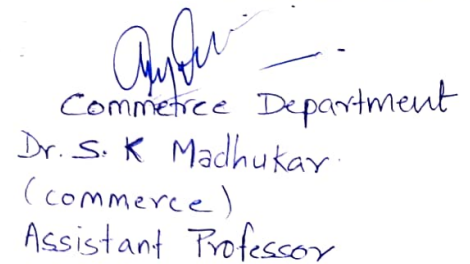 Commetree Department
Dr. S. K Madhukar
(commerce)
Assistant Professor